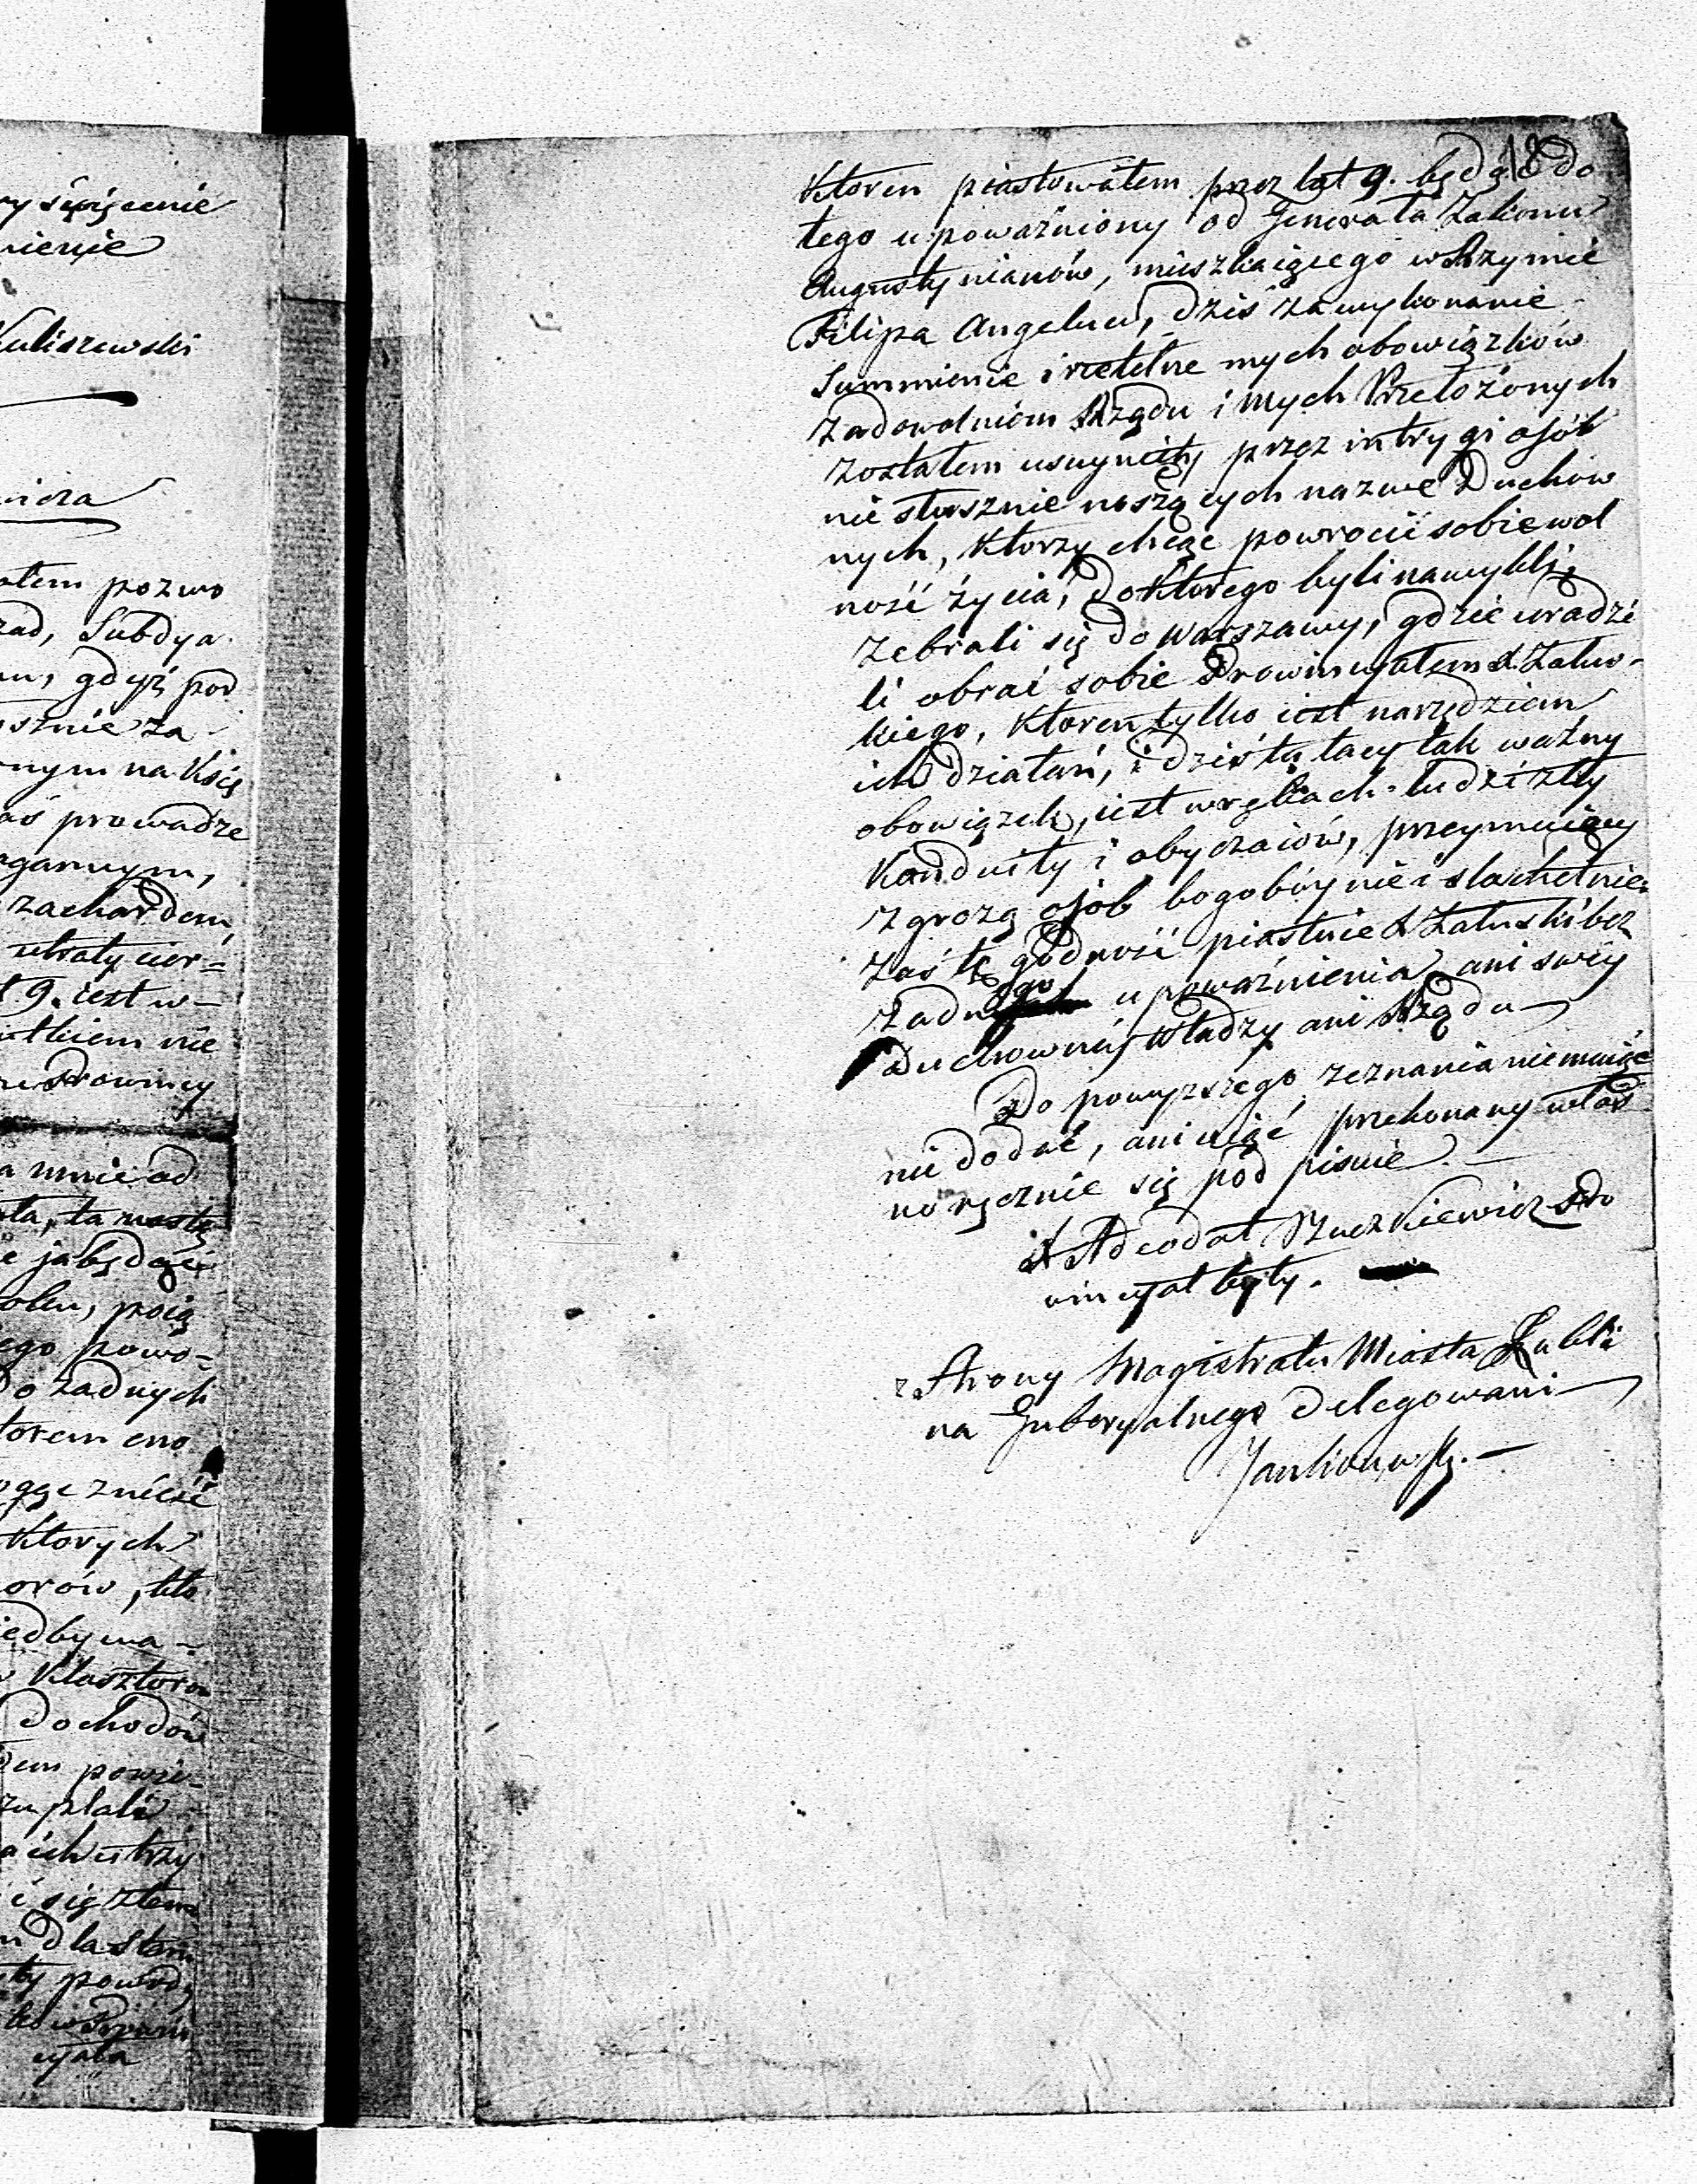 ry święcenie
nienie
Kuliszewski
wicza
ałem pozwo
rad, Subdya
gdyż pod
sznie za
nym na Księ
aś prowadze
nagannym,
zachar dem
utraty cier=
9. iest w-
nie
a mnie od
ta, ta nastę
ja będąc
poią
ego powo=
do żadnych
torem
ogąc znieść
Ktorych
orów, kto
iedbywa-
w Klasztorze
dochodów
dem powie-
płali
ich utrzy
się złem
dla Stanu
ty powód,
cyała
18
Ktoren piastowałem przez lat 9. będąc do
tego upoważniony od Generała Zakonu
Augustynianów, mieszkaiącego w Rzymie
Filipa Angeluci, dziś za wykonanie
Summienie i rzetelne mych obowiązków
zadowolniem Rządu i mych Przełożonych
zostałem usunięty przez intrygi osób
nie słusznie noszących nazwę Duchow
nych, Ktorzy chcąc powrocić sobie wol
ność życia, do Ktorego byli nawykli,
zebrali się do Warszawy, gdzie uradzi
li obrać sobie Prowincyałem X. Załus-
kiego, Ktoren tylko iest narzędziem
ich działań, i dziś ta tacy tak ważny
obowiązek, iest w rękach ludzi złey
Konduity i obyczaiów, przeymuiący
zgrozą osób bogobóynie i slachetnie.
Zaś tę godność piastuie X Załuski bez
żadnego upoważnienia ani swéy
Duchownéj Władzy ani Rządu
Do powyższego zeznania niemaiąc
nic dodać, ani uiąć przekonany włas
no ręcznie się pod pisuie. —
X Adeodat Szuszkiewicz Pro
wincyał były.
z Strony Magistratu Miasta Lubli
na Gubernyalnego delegowani
Jankowski. —